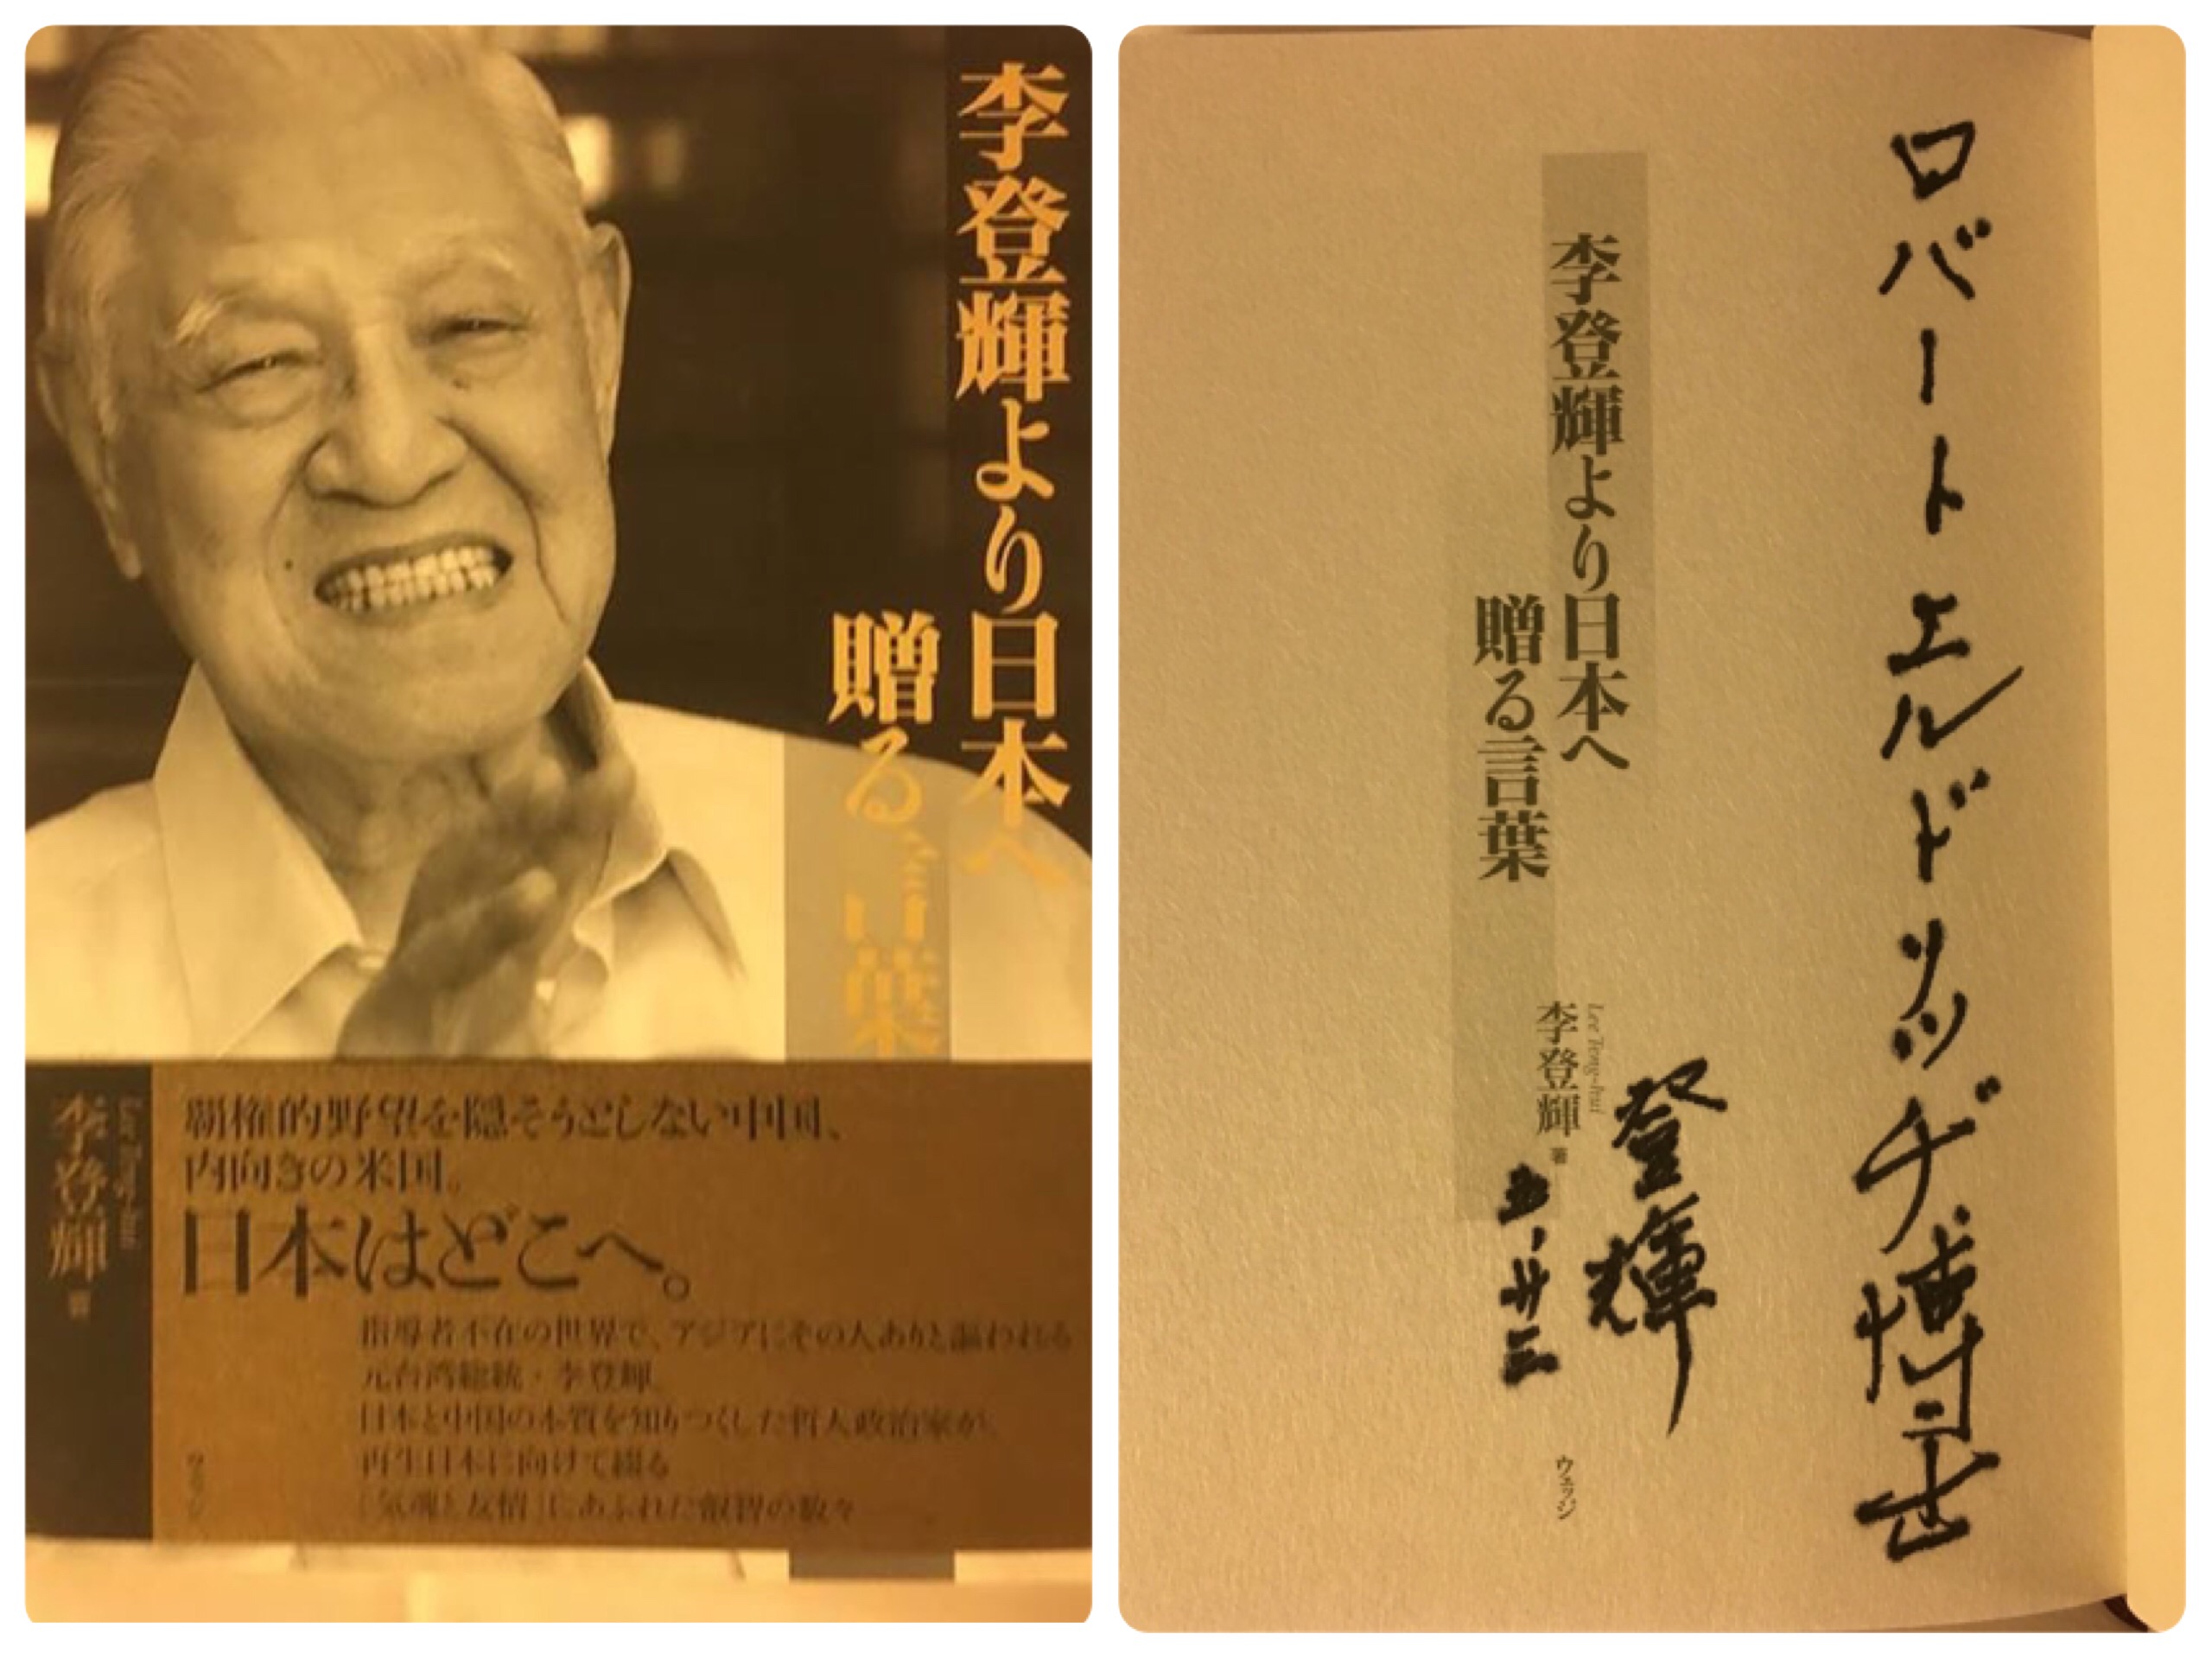 李登輝より日本へ
贈る言葉
Lee Teng-hui
李登輝 著
覇権的野望を隠そうとしない中国、
内向きの米国。
日本はどこへ。
指導者不在の世界で、アジアにその人ありと謳われる
元台湾総統・李登輝。
日本と中国の本質を知りつくした哲人政治家が、
再生日本に向けて綴る
「気魂と友情」にあふれた叡智の数々
ウェッジ
ロバートエルドリッヂ博士
李登輝より日本へ
贈る言葉
Lee Teng-hui
李登輝 著
登輝
五、廿三
ウェッジ